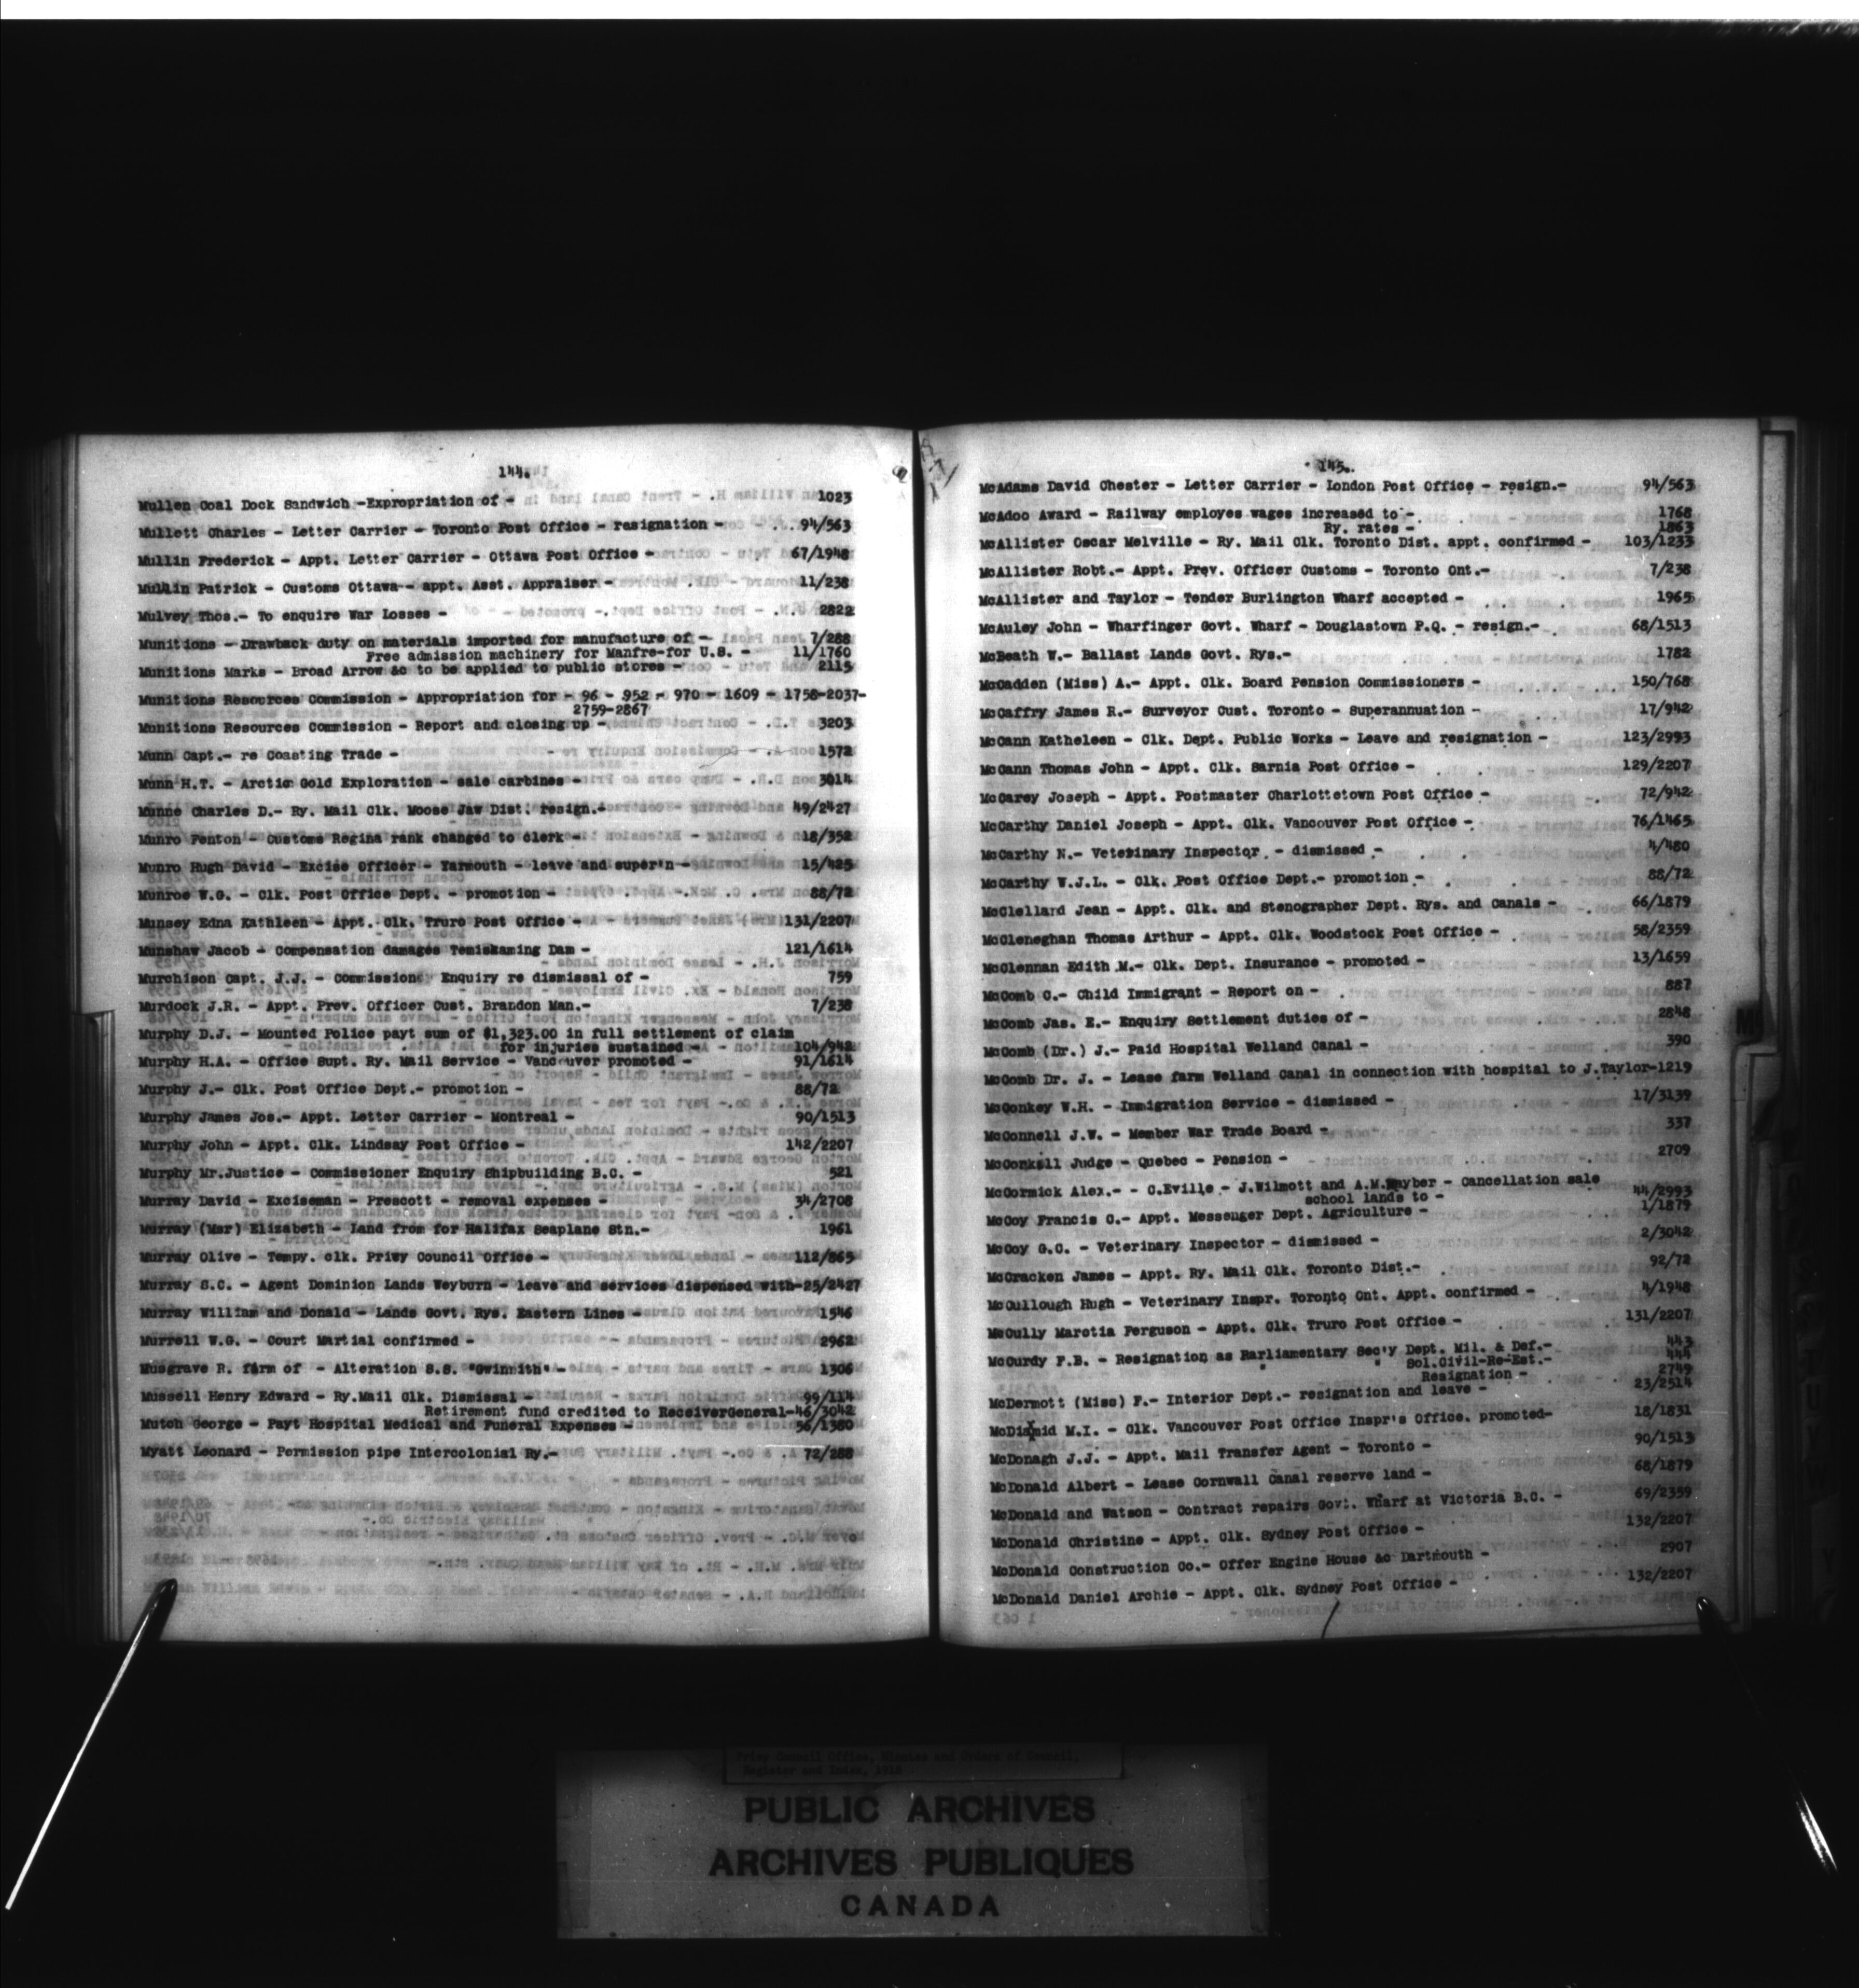 144.
Mullen Coal Dock Sandwich -Expropriation of - 1023
Mullett Charles - Letter Carrier - Toronto Post Office - resignation - 94/563
Mullin Frederick - Appt. Letter Carrier - Ottawa Post Office - 67/1948
Mullin Patrick - Customs Ottawa - appt. Asst. Appraiser - 11/238
Mulvey Thos.- To enquire War Losses - 2822
Munitions - Drawback duty on materials imported for manufacture of - 7/288
Free admission machinery for Manfre-for U.S. - 11/1760
Munitions Marks - Broad Arrow &c to be applied to public stores - 2115
Munitions Resources Commission - Appropriation for - 96 - 952 - 970 - 1609 - 1758-2037-
2759-2867
Munitions Resources Commission - Report and closing up - 3203
Munn Capt.- re Coasting Trade - 1572
Munn H.T. - Arctic Gold Exploration - sale carbines - 3014
Munne Charles D.- Ry. Mail Clk. Moose Jaw Dist. resign.- 49/2427
Munro Fenton - Customs Regina rank changed to clerk - 18/352
Munro Hugh David - Excise Officer - Yarmouth - leave and super'n - 15/425
Munroe W.G. - Clk. Post Office Dept. - promotion - 88/72
Munsey Edna Kathleen - Appt. Clk. Truro Post Office - 131/2207
Munshaw Jacob - Compensation damages Temiskaming Dam - 121/1614
Murchison Capt. J.J. - Commission Enquiry re dismissal of - 759
Murdock J.R. - Appt. Prev. Officer Cust. Brandon Man.- 7/238
Murphy D.J. - Mounted Police payt sum of $1,323.00 in full settlement of claim
for injuries sustained - 104/942
Murphy H.A. - Office Supt. Ry. Mail Service - Vancouver promoted - 91/1614
Murphy J.- Clk. Post Office Dept.- promotion - 88/72
Murphy James Jos.- Appt. Letter Carrier - Montreal - 90/1513
Murphy John - Appt. Clk. Lindsay Post Office - 142/2207
Murphy Mr.Justice - Commissioner Enquiry Shipbuilding B.C. - 521
Murray David - Exciseman - Prescott - removal expenses - 34/2708
Murray (Mar) Elizabeth - Land from for Halifax Seaplane Stn.- 1961
Murray Olive - Tempy. clk. Privy Council Office - 112/865
Murray S.C. - Agent Dominion Lands Weyburn - leave and services dispensed with-25/2427
Murray William and Donald - Lands Govt. Rys. Eastern Lines - 1546
Murrell W.G. - Court Martial confirmed - 2962
Musgrave R. farm of - Alteration S.S. "Gwinnith" - 1306
Mussell Henry Edward - Ry.Mail Clk. Dismissal - 99/114
Retirement fund credited to ReceiverGeneral-46/3042
Mutch George - Payt Hospital Medical and Funeral Expenses - 56/1380
Myatt Leonard - Permission pipe Intercolonial Ry.- 72/288
145.
McAdams David Chester - Letter Carrier - London Post Office - resign.- 94/563
McAdoo Award - Railway employes wages increased to - 1768
Ry. rates - 1863
McAllister Oscar Melville - Ry. Mail Clk. Toronto Dist. appt. confirmed - 103/1233
McAllister Robt.- Appt. Prev. Officer Customs - Toronto Ont.- 7/238
McAllister and Taylor - Tender Burlington Wharf accepted - 1965
McAuley John - Wharfinger Govt. Wharf - Douglastown P.Q. - resign.- 68/1513
McBeath W.- Ballast Lands Govt. Rys.- 1782
McCadden (Miss) A.- Appt. Clk. Board Pension Commissioners - 150/768
McCaffry James R.- Surveyor Cust. Toronto - Superannuation - 17/942
McCann Katheleen - Clk. Dept. Public Works - Leave and resignation - 123/2993
McCann Thomas John - Appt. Clk. Sarnia Post Office - 129/2207
McCarey Joseph - Appt. Postmaster Charlottetown Post Office - 72/942
McCarthy Daniel Joseph - Appt. Clk. Vancouver Post Office - 76/1465
McCarthy N.- Veterinary Inspector - dismissed - 4/480
McCarthy W.J.L. - Clk. Post Office Dept.- promotion - 88/72
McClellard Jean - Appt. Clk. and Stenographer Dept. Rys. and Canals - 66/1879
McCleneghan Thomas Arthur - Appt. Clk. Woodstock Post Office - 58/2359
McClennan Edith M.- Clk. Dept. Insurance - promoted - 13/1659
McComb C.- Child Immigrant - Report on - 887
McComb Jas. E.- Enquiry Settlement duties of - 2848
McComb (Dr.) J.- Paid Hospital Welland Canal - 390
McComb Dr. J. - Lease farm Welland Canal in connection with hospital to J.Taylor-1219
McConkey W.H. - Immigration Service - dismissed - 17/3139
McConnell J.W. - Member War Trade Board - 337
McConkell Judge - Quebec - Pension - 2709
McCormick Alex.- - C.Eville - J.Wilmott and A.M.Wayber - Cancellation sale
school lands to - 44/2993
McCoy Francis C.- Appt. Messenger Dept. Agriculture - 1/1879
McCoy G.C. - Veterinary Inspector - dismissed - 2/3042
McCracken James - Appt. Ry. Mail Clk. Toronto Dist.- 92/72
McCullough Hugh - Veterinary Inspr. Toronto Ont. Appt. confirmed - 4/1948
McCully Marotia Ferguson - Appt. Clk. Truro Post Office - 131/2207
McCurdy F.B. - Resignation as Parliamentary Sec'y Dept. Mil. & Def.- 443
" " Sol.Civil-Re-Est.- 444
Resignation - 2749
McDermott (Miss) F.- Interior Dept.- resignation and leave - 23/2514
McDiamid M.I. - Clk. Vancouver Post Office Inspr's Office. promoted- 18/1831
McDonagh J.J. - Appt. Mail Transfer Agent - Toronto - 90/1513
McDonald Albert - Lease Cornwall Canal reserve land - 68/1879
McDonald and Watson - Contract repairs Govt. Wharf at Victoria B.C. - 69/2359
McDonald Christine - Appt. Clk. Sydney Post Office - 132/2207
McDonald Construction Co.- Offer Engine House &c Dartmouth - 2907
McDonald Daniel Archie - Appt. Clk. Sydney Post Office - 132/2207
Privy Council Office, Minutes and Orders of Council,
Register and Index, 1918
PUBLIC ARCHIVES
ARCHIVES PUBLIQUES
CANADA